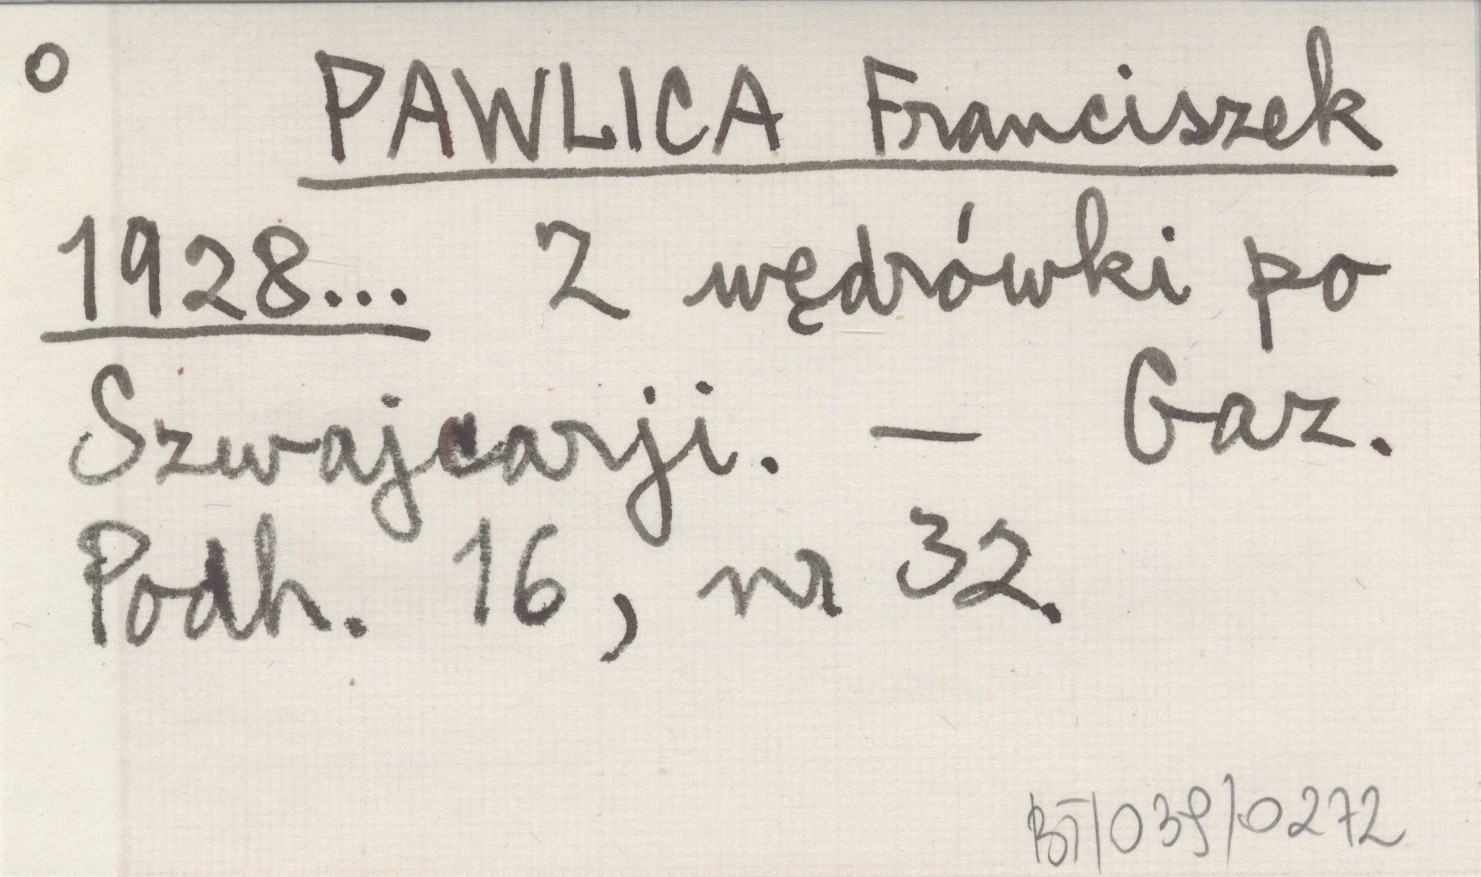 o PAWLICA Franciszek
1928... Z wędrówki po
Szwajcarji. — Gaz.
Podh. 16, nr 32.
BT/039/0272